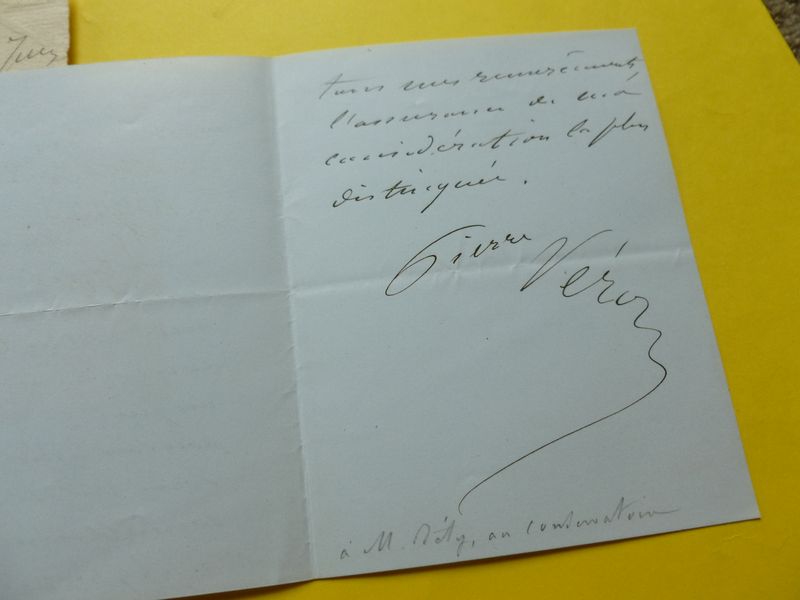 tous mes remerciements
l'assurance de ma
considération la plus
distinguée.
Pierre Véron
à M. Réty, au conservatoire